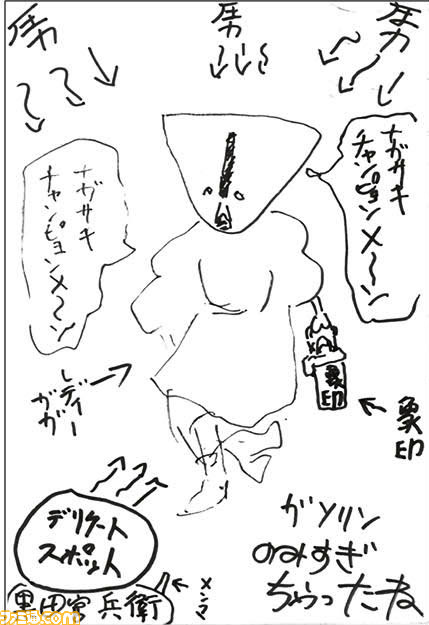 圧力
圧力
圧力
ナガサキ
チャンピョンメ〜ン
ナガサキ
チャンピョンメ〜ン
レディー
ガガ
象印
象印
デリケート
スポット
メンマ
黒田官兵衛
ガソリン
のみすぎ
ちゃったね
ファミ通.com